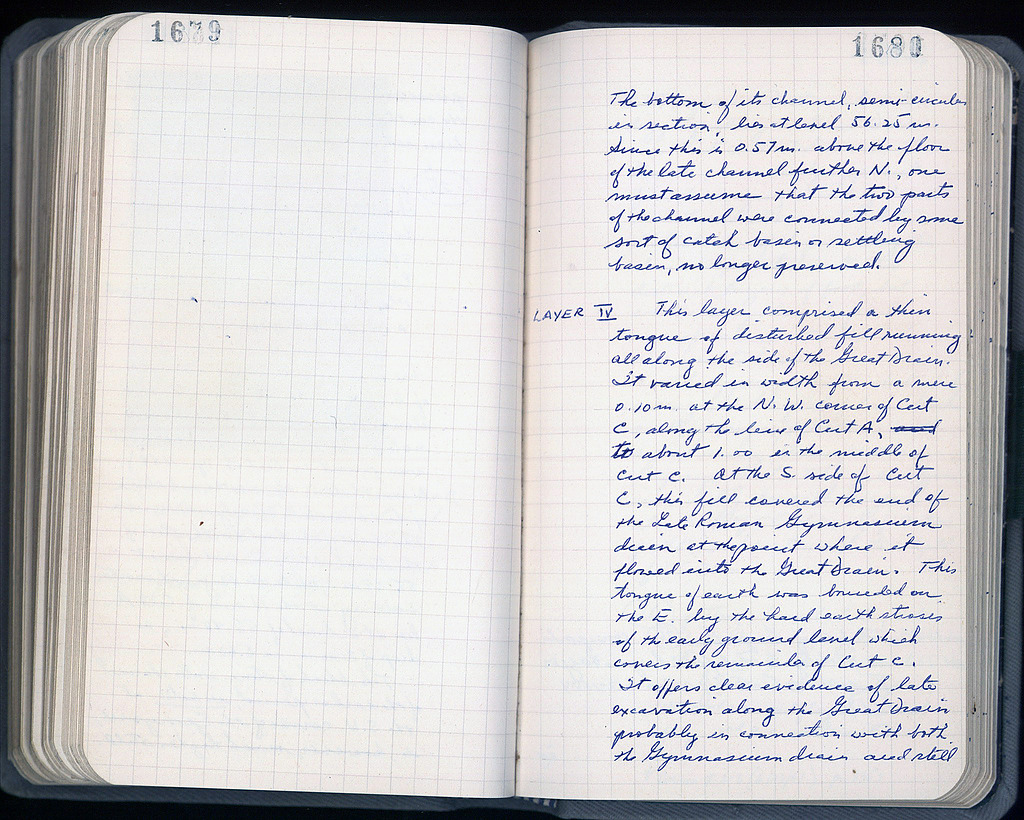 1679
1680
The bottom of its channel, semi-circular
in section, lies at level 56.25 m.
Since this is 0.57 m. above the floor
of the late channel further N., one
must assume that the two parts
of the channel were connected by some
sort of catch basin or settling
basin, no longer preserved.
LAYER IV This layer comprised a thin
tongue of disturbed fill running
all along the side of the Great Drain.
It varied in width from a mere
0.10 m. at the N.W. corner of Cut
C, along the line of Cut A, and
to about 1.00 in the middle of
Cut C. At the S. side of Cut
C, this fill covered the end of
the Late Roman Gymnasium
drain at the point where it
flowed into the Great Drain. This
tongue of earth was bounded on
the E. by the hard earth stroses
of the early ground level which
covers the remainder of Cut C.
It offers clear evidence of late
excavation along the Great Drain
probably in connection with both
the Gymnasium drain and still